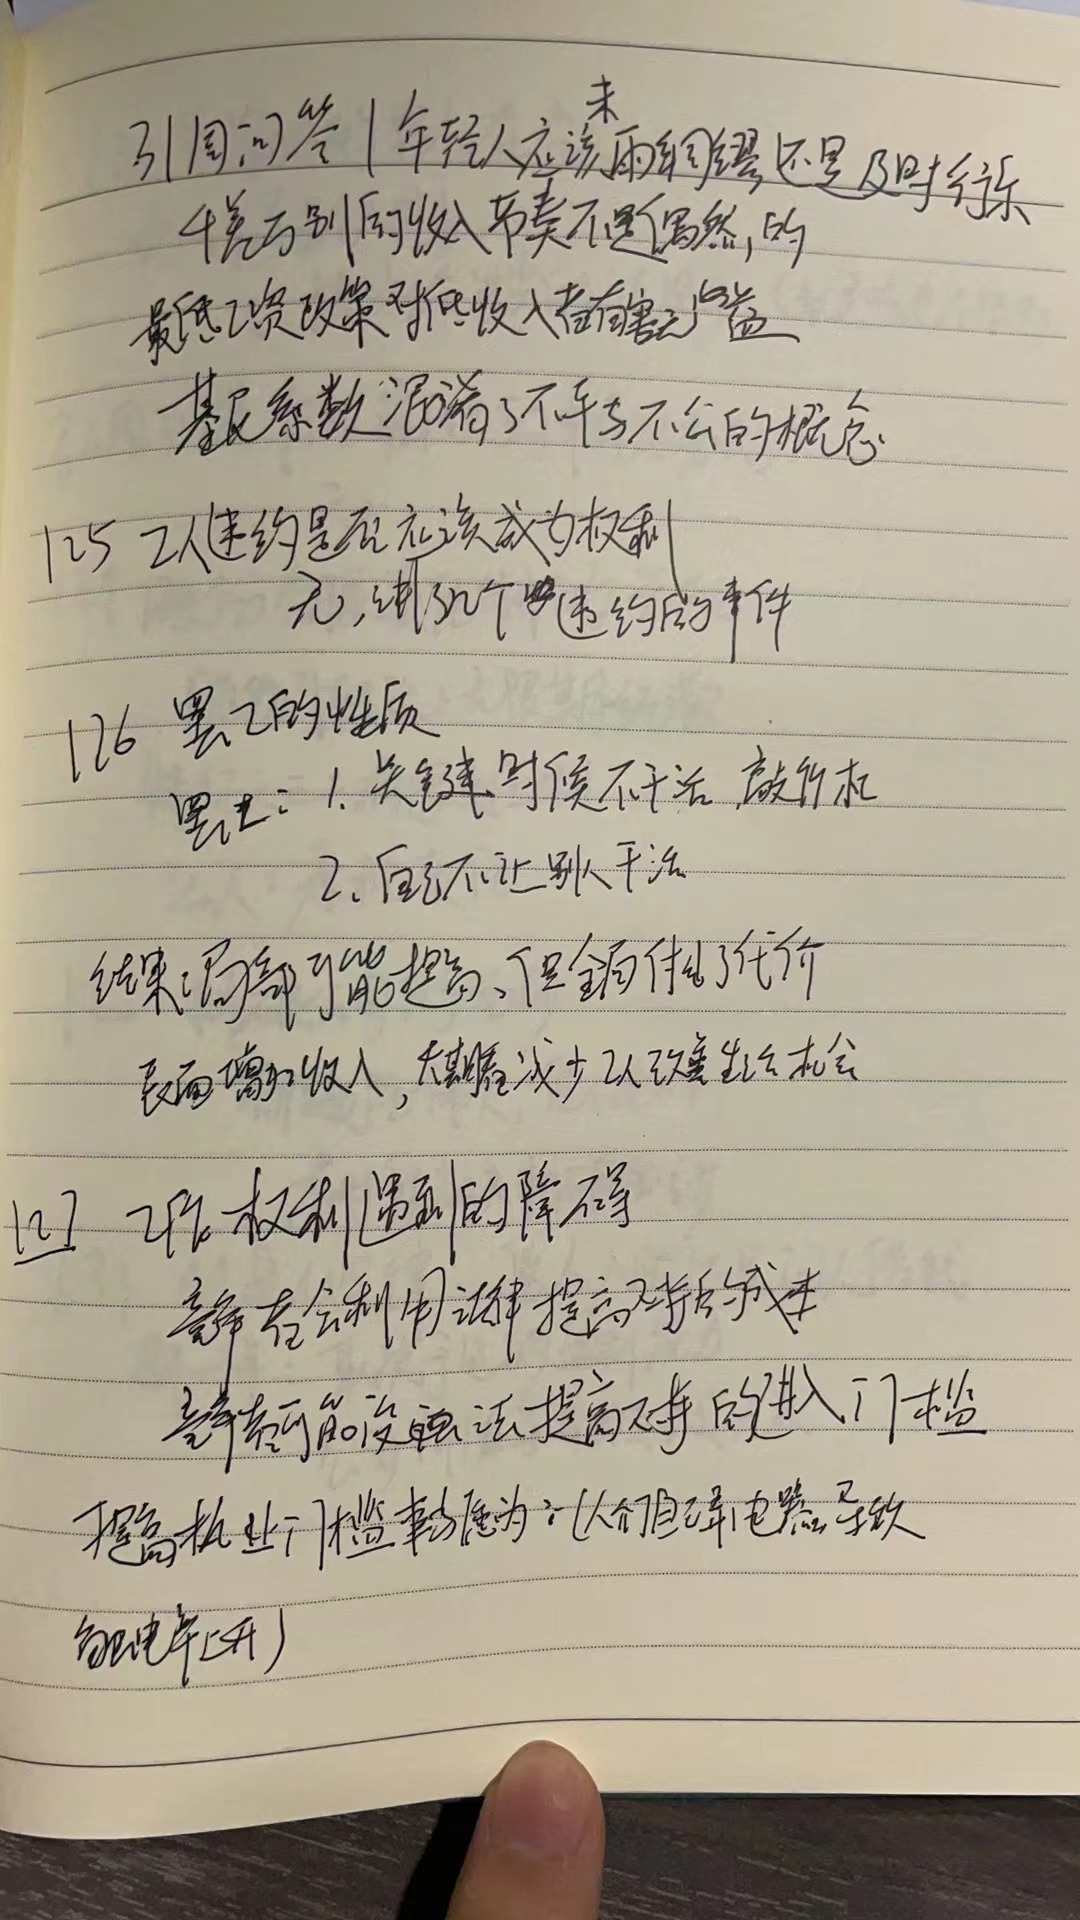 31周问答|年轻人应该未雨绸缪还是及时行乐
千差万别的收入节奏不是偶然的
最低工资政策对低收入者有害无益
基尼系数混淆了不平与不公的概念
125 工人违约是否应该成为权利
无,绑了几个违约的事件
126 罢工的性质
罢工:1.关键时候不干活 敲竹杠
2.自己不让别人干活
结果:局部可能提高,但全局付出了代价
表面增加收入,长期在减少工人改善生活机会
127 工作权利遇到的障碍
竞争者会利用法律提高对手的成本
竞争者可能设法提高对手的进入门槛
提高执业门槛事与愿为:(人们自己弄电器导致
触电率上升)